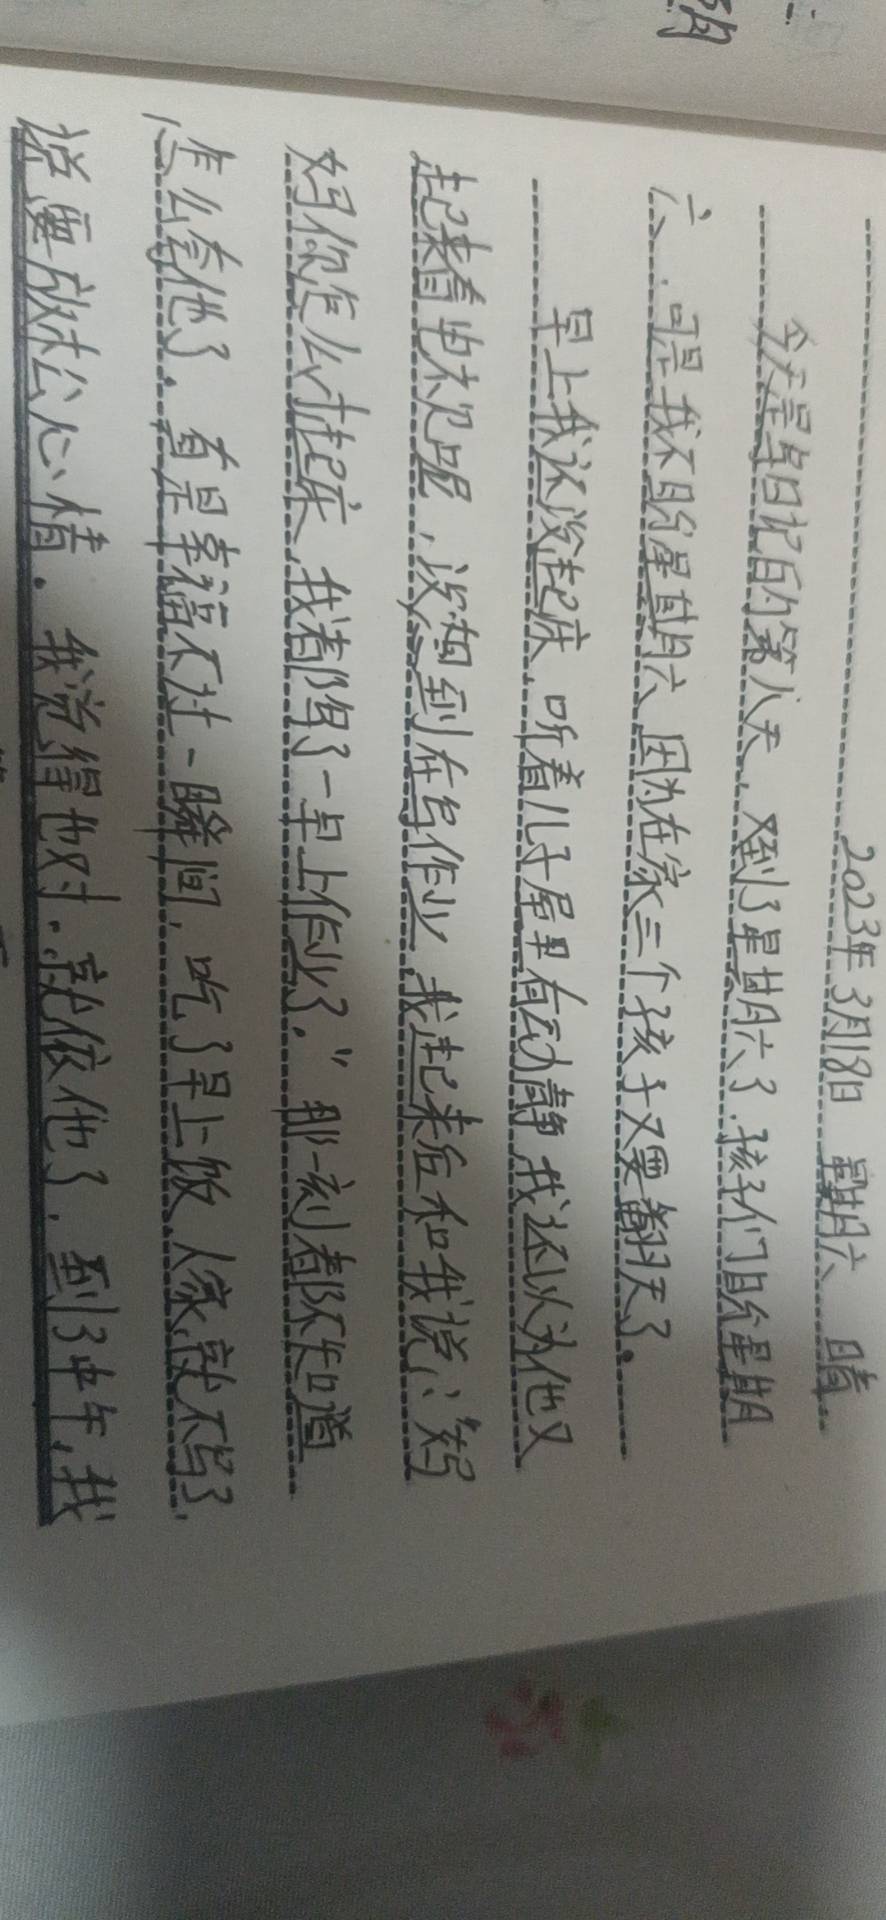 2023年3月18日 星期六 晴
今天是写日记的第八天，又到了星期六了.孩子们盼星期
六，可是我不盼星期六，因为在家三个孩子又要翻天了。
早上我还没起床，听着儿子屋里有动静，我还以为他又
起来看电视呢，没想到在写作业，我起来后和我说：“妈
妈你怎么才起床，我都写了一早上作业了。”那一刻都不知道
怎么夸他了。真是幸福不过一瞬间，吃了早上饭，人家就不写了，
说要放松心情。我觉得也对.就依他了，到了中午，我